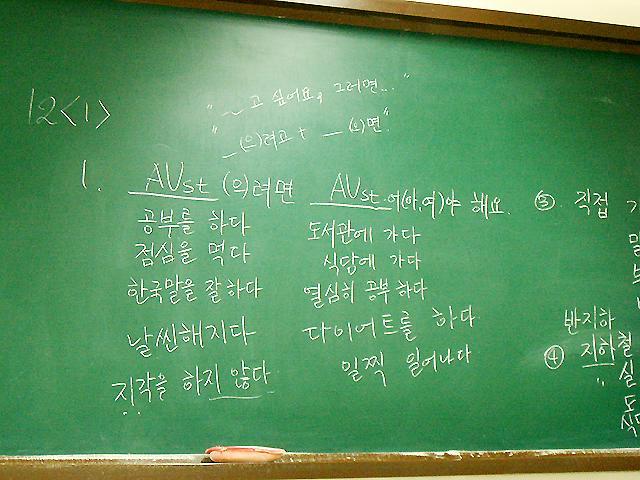 12<1>
"~고 싶어요, 그러면..."
"_(으)려고 + _(으)면"
1. AVst (으)려면 AVst 어(아,여)야 해요.
공부를 하다 도서관에 가다
점심을 먹다 식당에 가다
한국말을 잘하다 열심히 공부하다
날씬해지다 다이어트를 하다
지각을 하지 않다 일찍 일어나다
③. 직접
반지하
④ 지하철
" 실
도
식